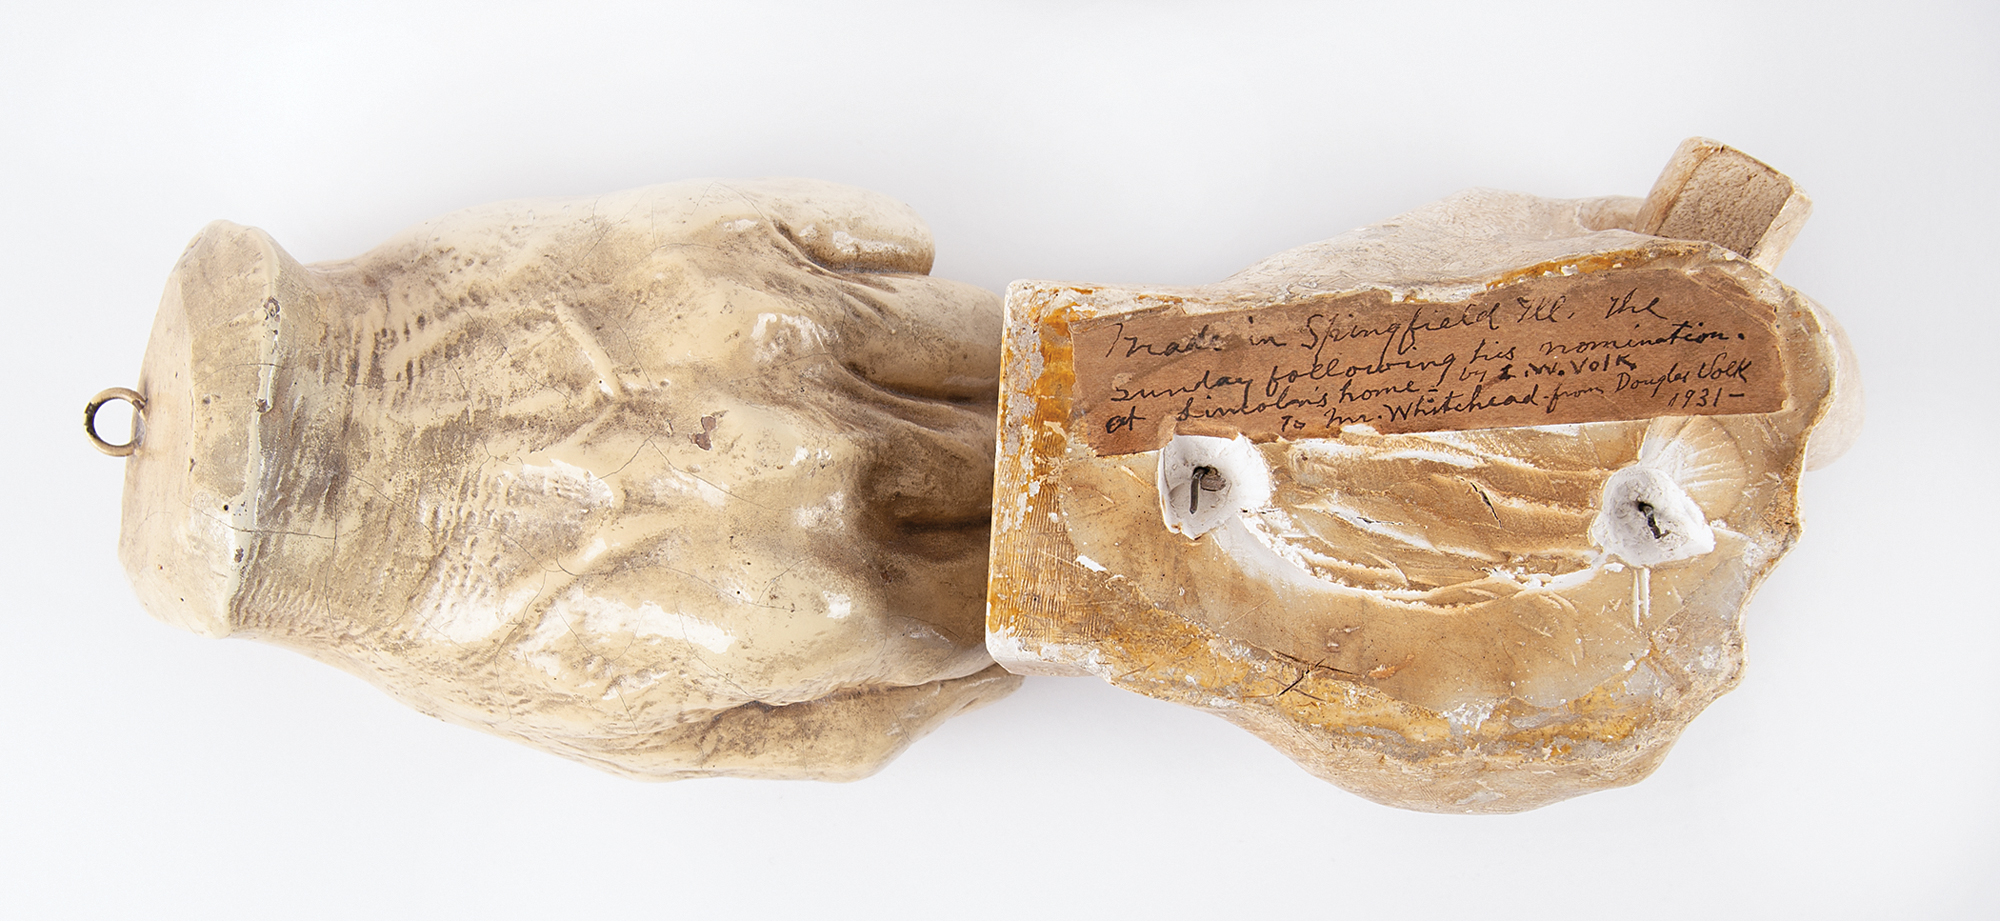 Made in Springfield Ill. the
Sunday following his nomination.
at Lincoln's home - by L.W. Volk
To Mr. Whitehead - from Douglas Volk
1931 -